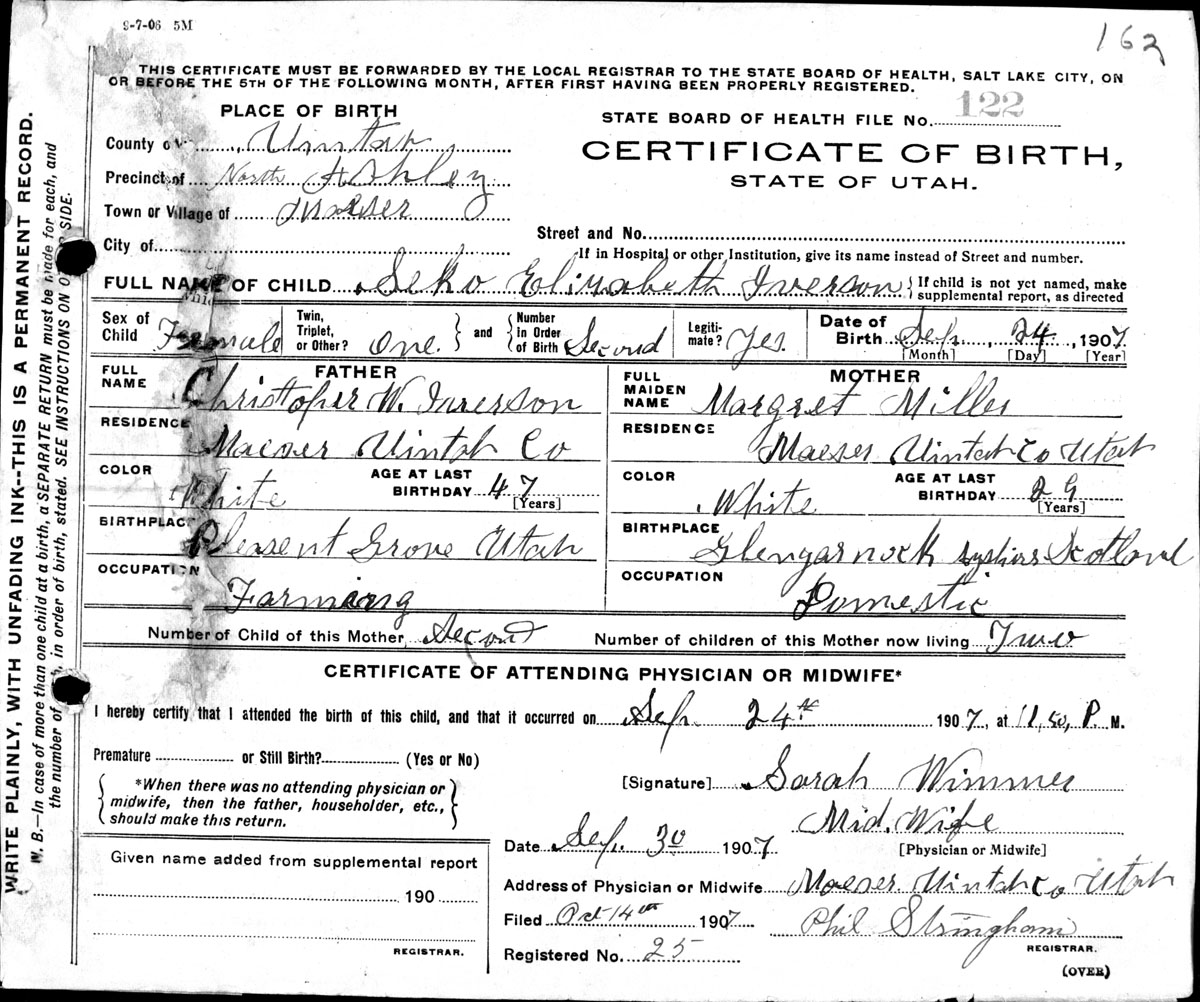 9-7-06 5M
162
THIS CERTIFICATE MUST BE FORWARDED BY THE LOCAL REGISTRAR TO THE STATE BOARD OF HEALTH, SALT LAKE CITY, ON
OR BEFORE THE 5TH OF THE FOLLOWING MONTH, AFTER FIRST HAVING BEEN PROPERLY REGISTERED.
PLACE OF BIRTH
STATE BOARD OF HEALTH FILE No. 122
County of Uintah
CERTIFICATE OF BIRTH,
STATE OF UTAH.
Precinct of North Ashley
Town or Village of Maeser
Street and No.
City of
If in Hospital or other Institution, give its name instead of Street and number.
FULL NAME OF CHILD Seko Elizabeth Iverson { If child is not yet named, make
supplemental report, as directed
Sex of Child Female
Twin, Triplet, or Other? One } and { Number in Order of Birth Second
Legitimate? Yes.
Date of Birth Sep. 24, 1907
[Month] [Day] [Year]
FATHER
FULL NAME Christopher W. Iverson
RESIDENCE Maeser Uintah Co
COLOR White
AGE AT LAST BIRTHDAY 47
[Years]
BIRTHPLACE Plesent Grove Utah
OCCUPATION Farming
MOTHER
FULL MAIDEN NAME Margret Miller
RESIDENCE Maeser Uintah Co Utah
COLOR White
AGE AT LAST BIRTHDAY 29
[Years]
BIRTHPLACE Glengarnock Scotland
OCCUPATION Domestic
Number of Child of this Mother Second Number of children of this Mother now living Two
CERTIFICATE OF ATTENDING PHYSICIAN OR MIDWIFE*
I hereby certify that I attended the birth of this child, and that it occurred on Sep. 24th 1907, at 11,50, P. M.
Premature or Still Birth? (Yes or No)
*When there was no attending physician or
midwife, then the father, householder, etc.,
should make this return.
[Signature] Sarah Wimmer
Mid. Wife
Date Sep. 30 1907
[Physician or Midwife]
Given name added from supplemental report
190
REGISTRAR.
Address of Physician or Midwife Maeser Uintah Co Utah
Filed Oct 14th 1907 Phil Stringham
REGISTRAR.
Registered No. 25
(OVER)
WRITE PLAINLY, WITH UNFADING INK--THIS IS A PERMANENT RECORD.
N. B.—In case of more than one child at a birth, a SEPARATE RETURN must be made for each, and
the number of in order of birth, stated. SEE INSTRUCTIONS ON SIDE.